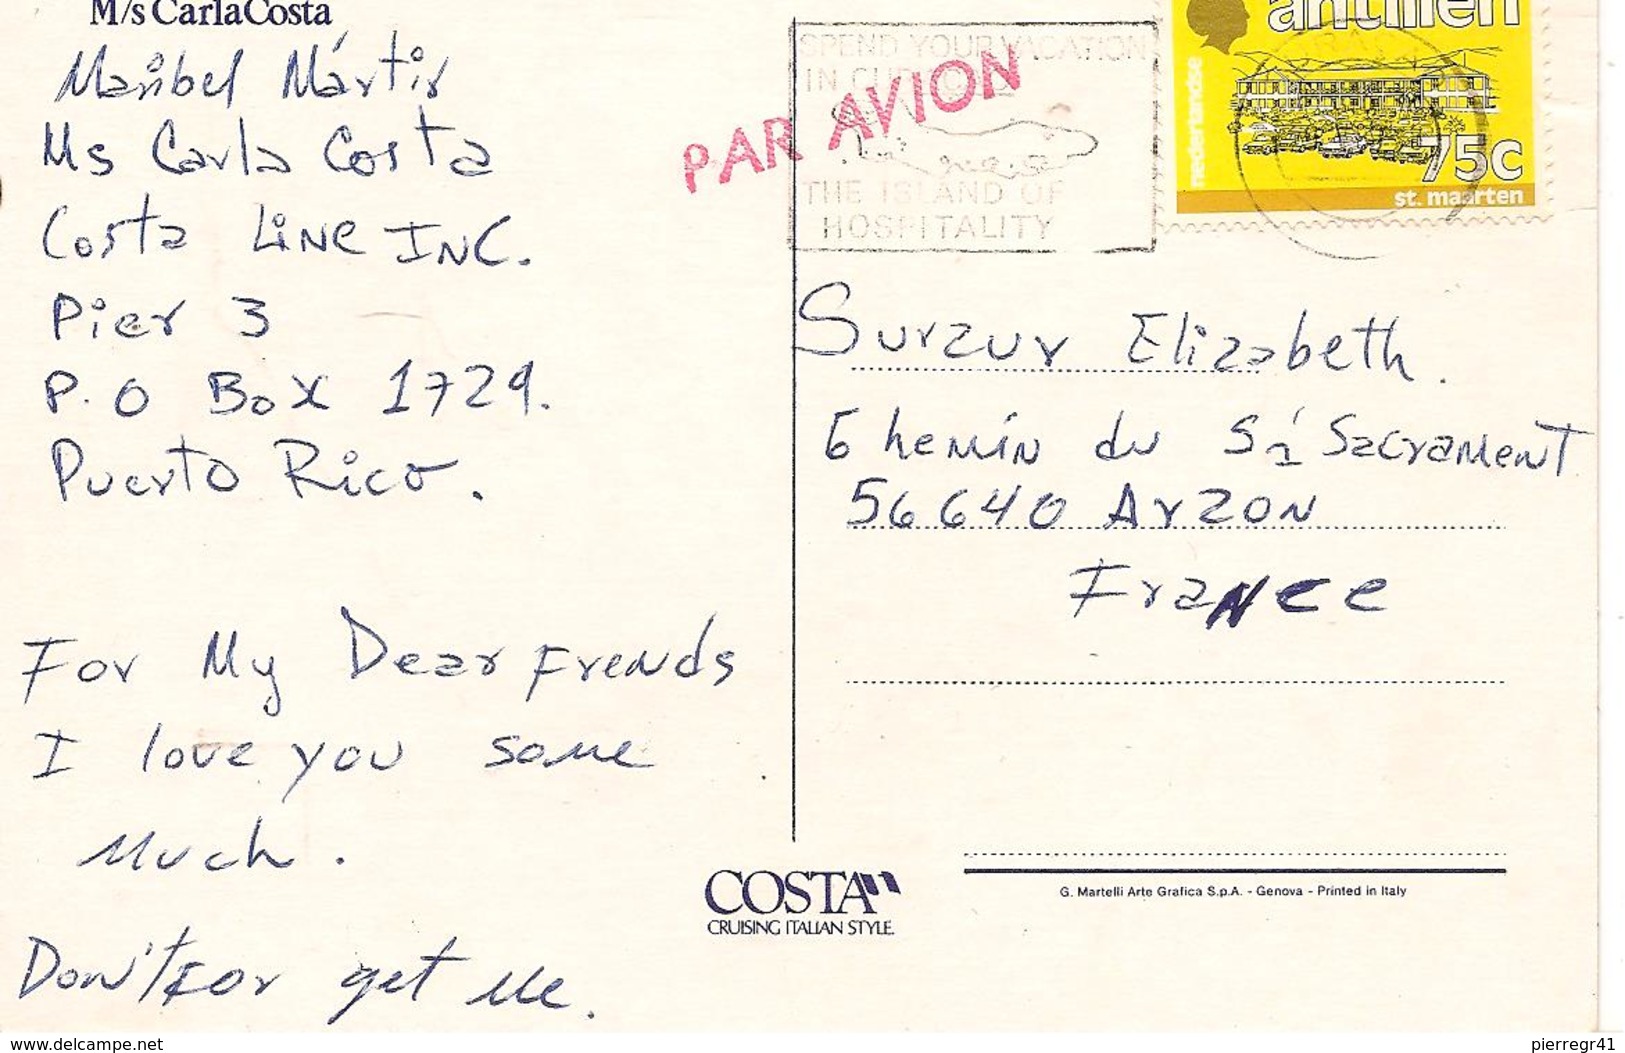 M/s CarlaCosta
Maribel Mártir
Ms Carla Costa
Costa Line INC.
Pier 3
P.O Box 1729.
Puerto Rico.
For My Dear Frends
I love you some
Much.
Don't For get Me.
PAR AVION
SPEND YOUR VACATION
IN
THE ISLAND OF
HOSPITALITY
antillen
nederlandse
75c
st. maarten
Surzur Elizabeth.
6 hemin du St Sacrament
56640 Arzon
France
COSTA
CRUISING ITALIAN STYLE.
G. Martelli Arte Grafica S.p.A. - Genova - Printed in Italy
www.delcampe.net
pierregr41